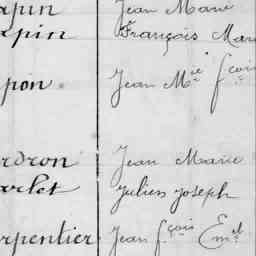 apin Jean Marie
rpin François Mar
apon Jean Mie fçois
ardron Jean Marie
arlet Julien Joseph
arpentier Jean fçois Eml